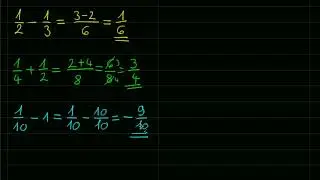 1/2 - 1/3 = 3-2/6 = 1/6
1/4 + 1/2 = 2+4/8 = 6 3/8 4 = 3/4
1/10 - 1 = 1/10 - 10/10 = - 9/10